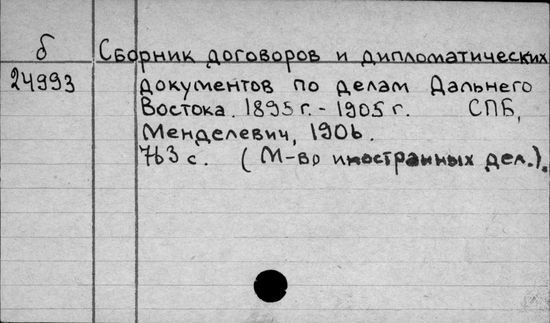 б Сборник договоров и дипломатических
24993 документов по делам Дальнего
Востока. 1895 г. - 1905 г. СПБ,
Менделевич, 1906.
763 с. (М-во иностранных дел.).